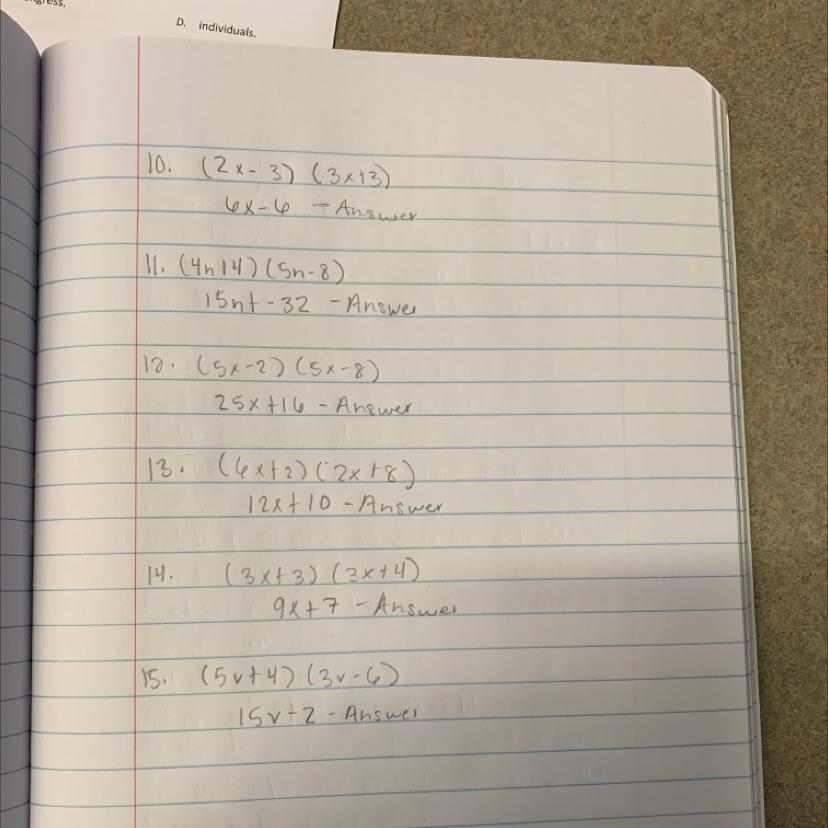 ngress.
D. individuals.
10. (2x-3) (3x+3)
6x-6 - Answer
11. (4n+4) (5n-8)
15n+-32 - Answer
12. (5x-2) (5x-8)
25x+16 - Answer
13. (6x+2) (2x+8)
12x+10 - Answer
14. (3x+3) (3x+4)
9x+7 - Answer
15. (5v+4) (3v-6)
15v-2 - Answer